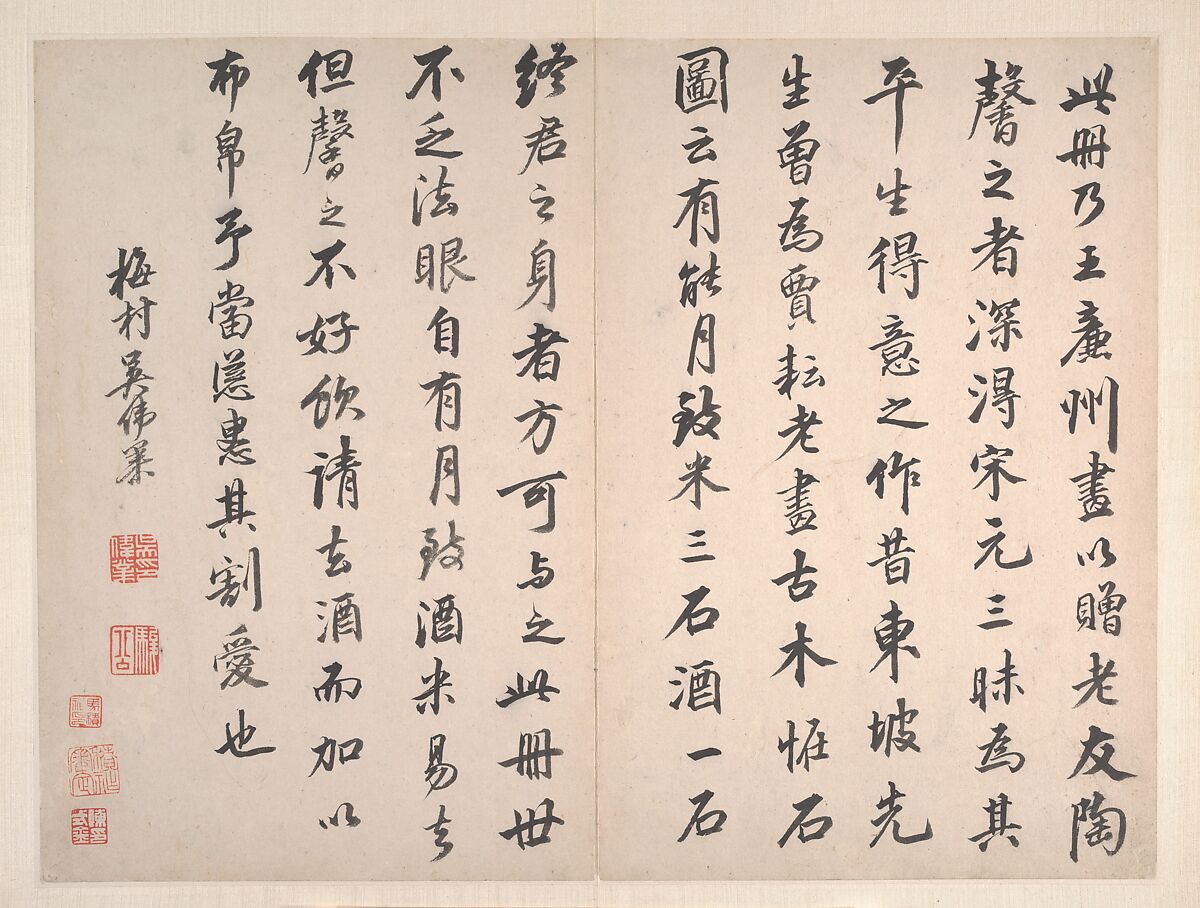 此冊乃王廉州畫以贈老友陶
馨之者深得宋元三昧為其
平生得意之作昔東坡先
生曾為賈耘老畫古木怪石
圖云有能月致米三石酒一石
終君之身者方可与之此冊世
不乏法眼自有月致酒米易去
但馨之不好飲請去酒而加以
布帛予當慫恿其割愛也
梅村吳偉業
吳偉業印